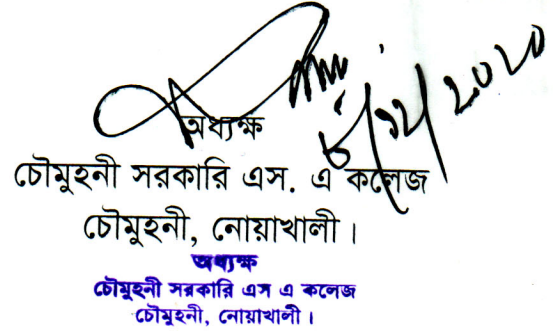 ৮/১২/২০২০
অধ্যক্ষ
চৌমুহনী সরকারি এস. এ কলেজ
চৌমুহনী, নোয়াখালী।
অধ্যক্ষ
চৌমুহনী সরকারি এস এ কলেজ
চৌমুহনী, নোয়াখালী।